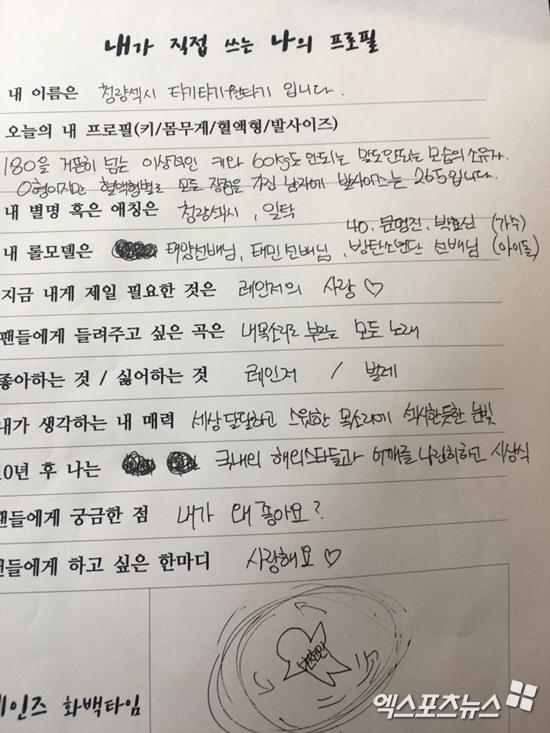 내가 직접 쓰는 나의 프로필
내 이름은 청량섹시 타기타기원타기 입니다.
오늘의 내 프로필(키/몸무게/혈액형/발사이즈)
180을 거뜬히 넘는 이상적인 키와 60kg도 안되는 말도안되는 모습의 소유자.
O형이지만 혈액형별로 모든 장점을 가진 남자에 발사이즈는 265입니다.
내 별명 혹은 애칭은 청량섹시, 일탁
40, 문명진, 박효신 (가수)
내 롤모델은 태양선배님, 태민선배님, 방탄소년단 선배님 (아이돌)
지금 내게 제일 필요한 것은 레인저의 사랑♡
팬들에게 들려주고 싶은 곡은 내목소리로 부르는 모든 노래
좋아하는 것 / 싫어하는 것 레인저 / 벌레
내가 생각하는 내 매력 세상달달하고 스윗한 목소리에 섹시한듯한 눈빛
10년 후 나는 국내외 해외스타들과 어깨를 나란히하고 시상식
팬들에게 궁금한 점 내가 왜 좋아요?
팬들에게 하고 싶은 한마디 사랑해요♡
레인즈 화백타임
엑스포츠뉴스